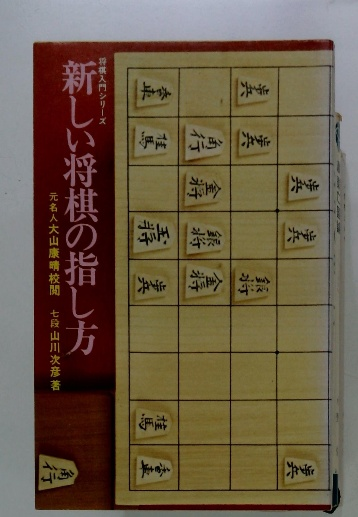 将棋入門シリーズ
新しい将棋の指し方
元名人大山康晴校閲
七段山川次彦著
香車
歩兵
桂馬
角行
歩兵
金将
歩兵
玉将
銀将
歩兵
歩兵
金将
銀将
桂馬
香車
歩兵
角行